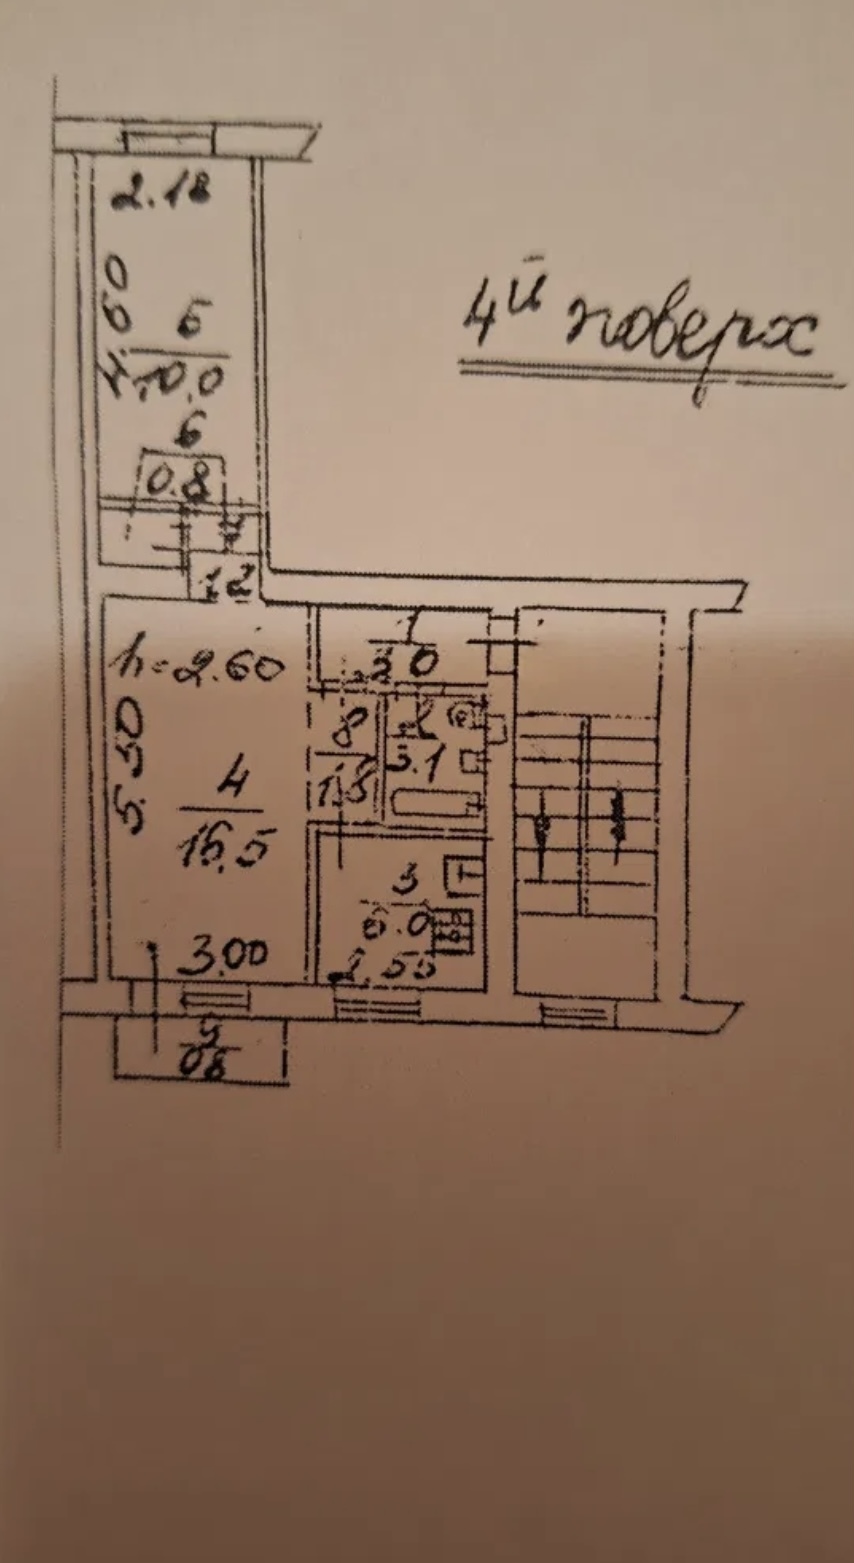 2.18
4.60
6
10.0
6
0.8
4й поверх
12
h=2.60
5.50
8
1.5
2
3.1
4
16,5
3
6.0
3.00
2.55
5
0.8